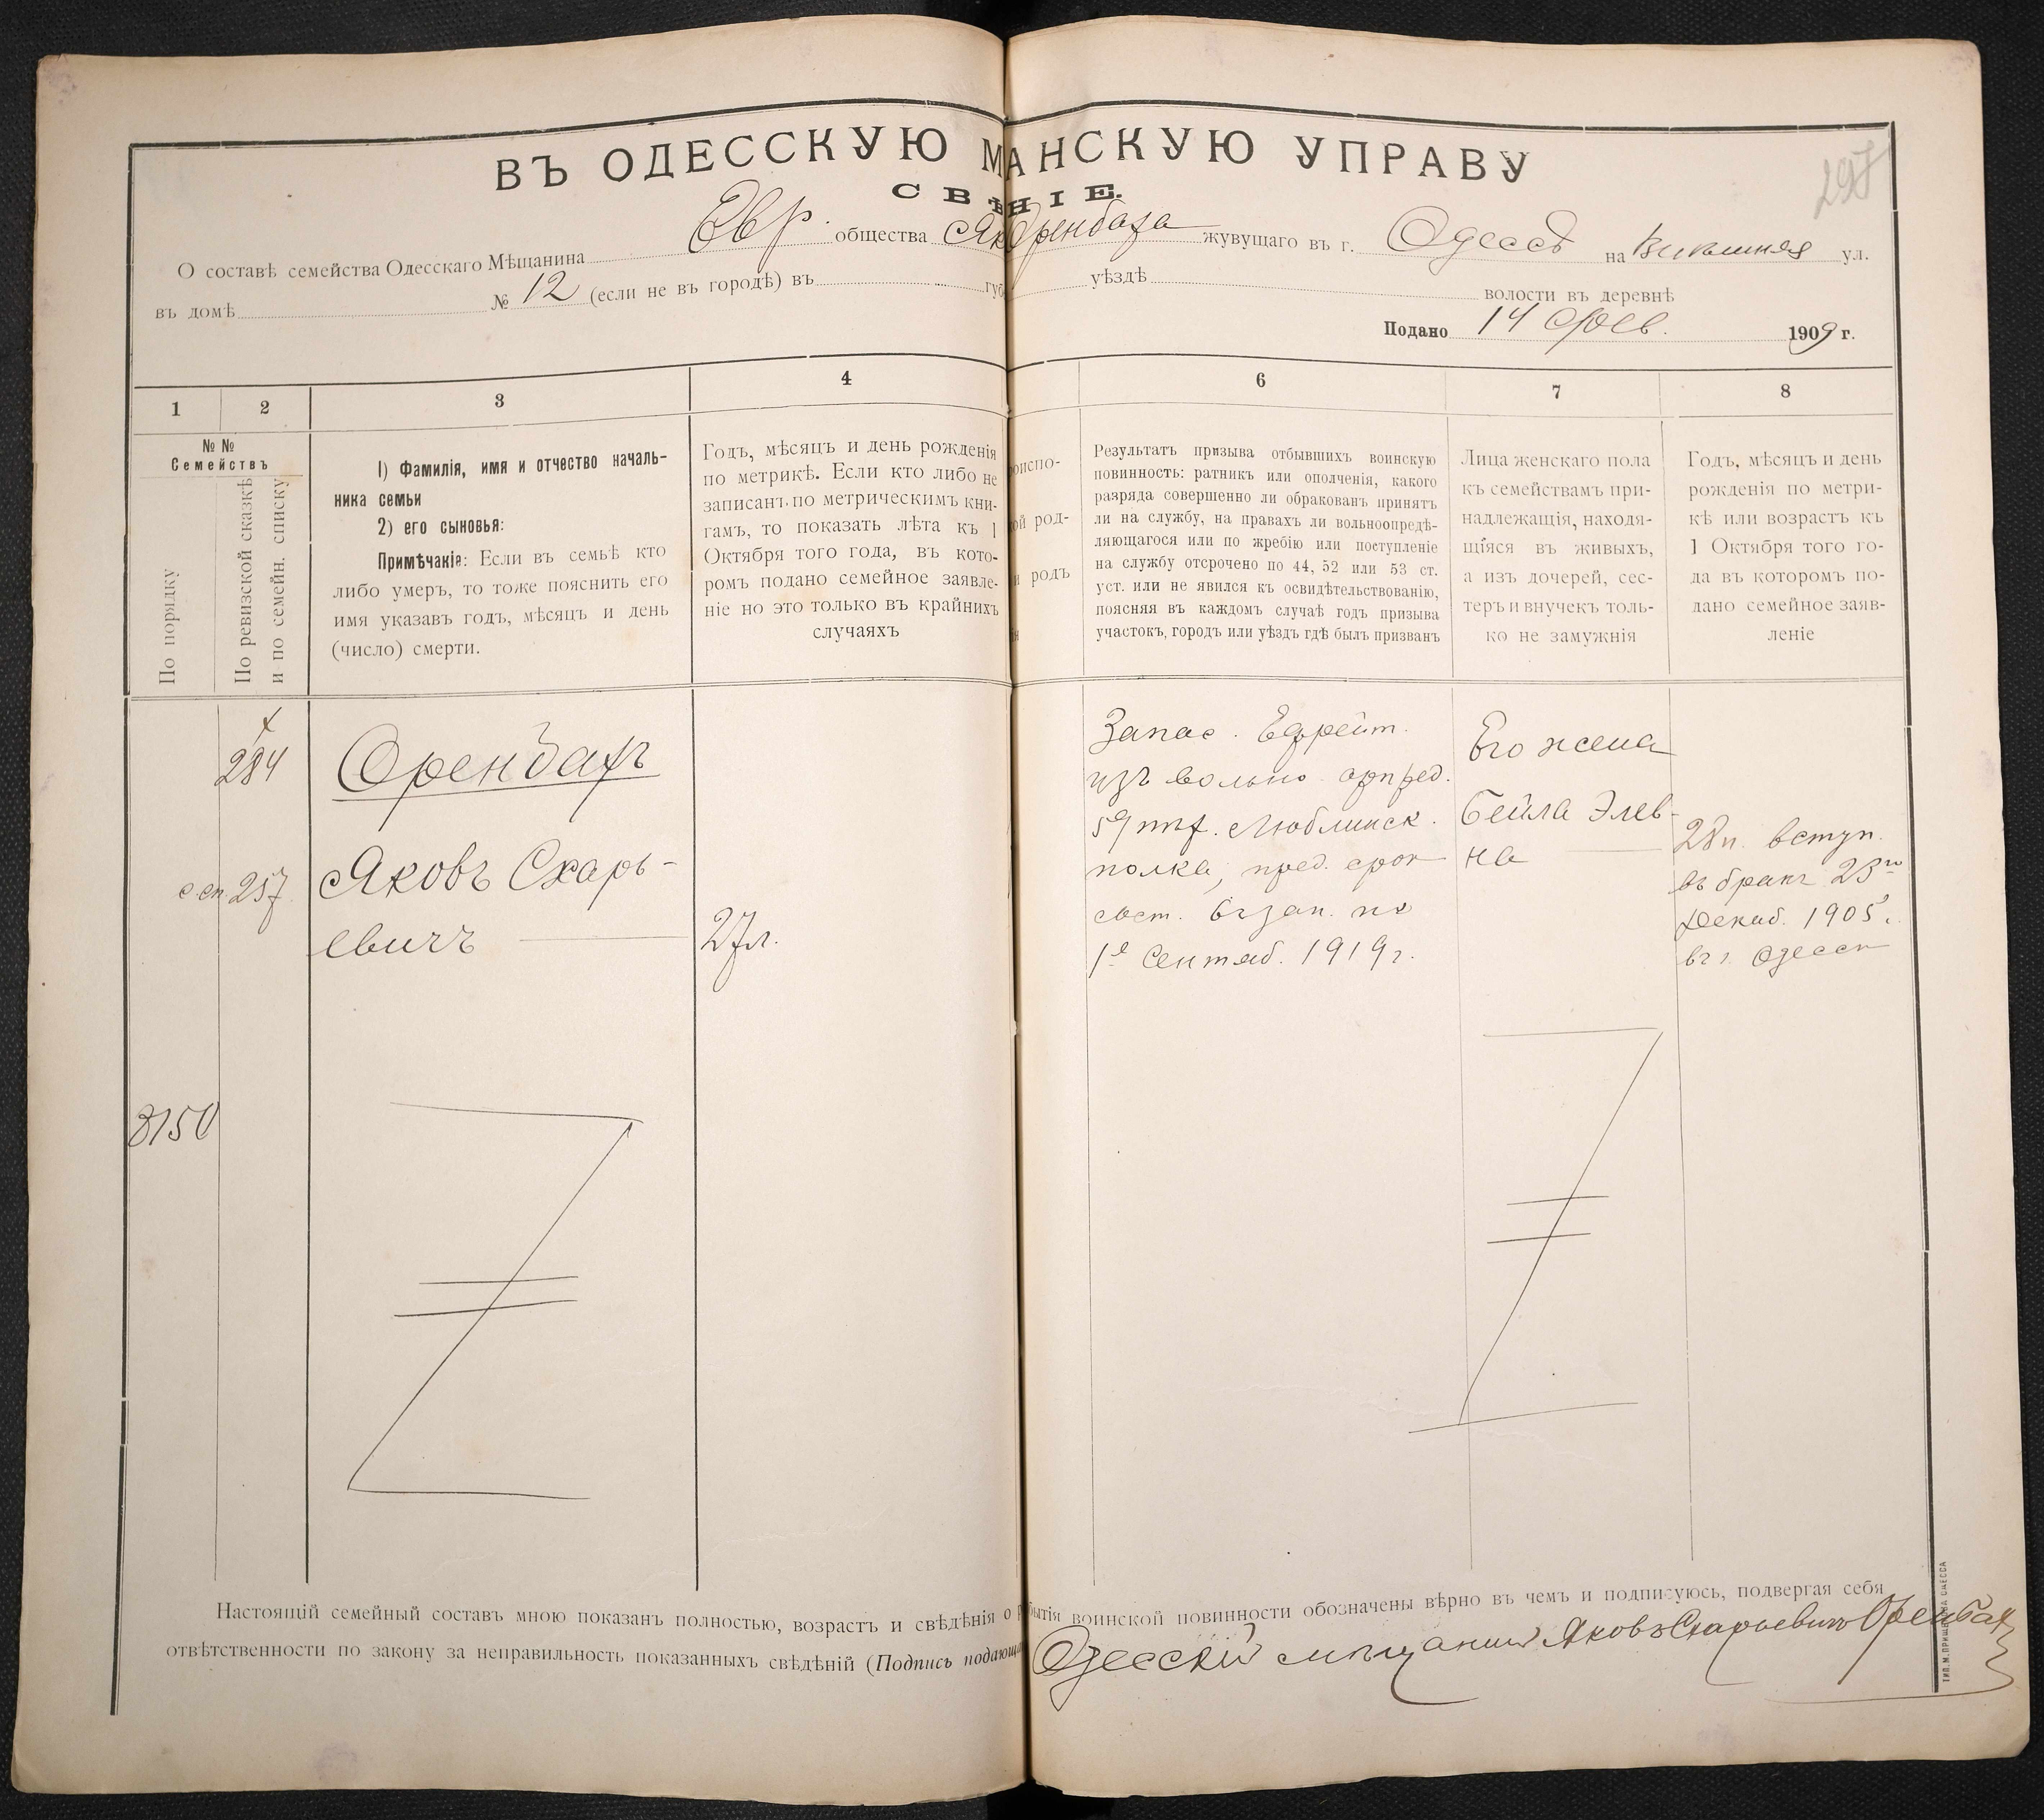 ВЪ ОДЕССКУЮ М АНСКУЮ УПРАВУ
СВѢ НІЕ.
297
О составѣ семейства Одесскаго Мѣщанина Евр. общества Як Оренбаха жувущаго въ г. Одессѣ на ул.
въ домѣ № 12 (если не въ городѣ) въ губ уѣздѣ волости въ деревнѣ
Подано 14 Фев. 1909 г.
1 2 3 4 6 7 8
№ №
Семействъ
По порядку
По ревизской сказкѣ
и по семейн. списку
1) Фамилія, имя и отчество началь-
ника семьи
2) его сыновья:
Примѣчаніе: Если въ семьѣ кто
либо умеръ, то тоже пояснить его
имя указавъ годъ, мѣсяцъ и день
(число) смерти.
Годъ, мѣсяцъ и день рожденія
по метрикѣ. Если кто либо не
записанъ по метрическимъ кни-
гамъ, то показать лѣта къ 1
Октября того года, въ кото-
ромъ подано семейное заявле-
ніе но это только въ крайнихъ
случаяхъ
роиспо-
ой род-
и родъ
Результатъ призыва отбывшихъ воинскую
повинность: ратникъ или ополченія, какого
разряда совершенно ли обракованъ принятъ
ли на службу, на правахъ ли вольноопредѣ-
ляющагося или по жребію или поступленіе
на службу отсрочено по 44, 52 или 53 ст.
уст. или не явился къ освидѣтельствованію,
поясняя въ каждомъ случаѣ годъ призыва
участокъ, городъ или уѣздъ гдѣ былъ призванъ
Лица женскаго пола
къ семействамъ при-
надлежащія, находя-
щіяся въ живыхъ,
а изъ дочерей, сес-
теръ и внучекъ толь-
ко не замужнія
Годъ, мѣсяцъ и день
рожденія по метри-
кѣ или возрастъ къ
1 Октября того го-
да въ которомъ по-
дано семейное заяв-
леніе
284
Оренбахъ
с сп. 257
Яковъ Схарь-
евичъ
27 л.
Запас. Ефрейт.
изъ вольно опред.
59 пѣх. Люблинск.
полка, пред. срок
сост. въ зап. по
1е Сентяб. 1919 г.
Его жена
Бейла Элев-
на
28 л. вступ.
въ бракъ 23го
Декаб. 1905 г.
въ г. Одессѣ
3150
Настоящій семейный составъ мною показанъ полностью, возрастъ и свѣдѣнія о бытія воинской повинности обозначены вѣрно въ чемъ и подписуюсь, подвергая себя
отвѣтственности по закону за неправильность показанныхъ свѣдѣній (Подпись подающа Одесскій мѣщанинъ Яковъ Схарьевичъ Оренбах
ТИП. М. ПРИЩ НА ОДЕССА